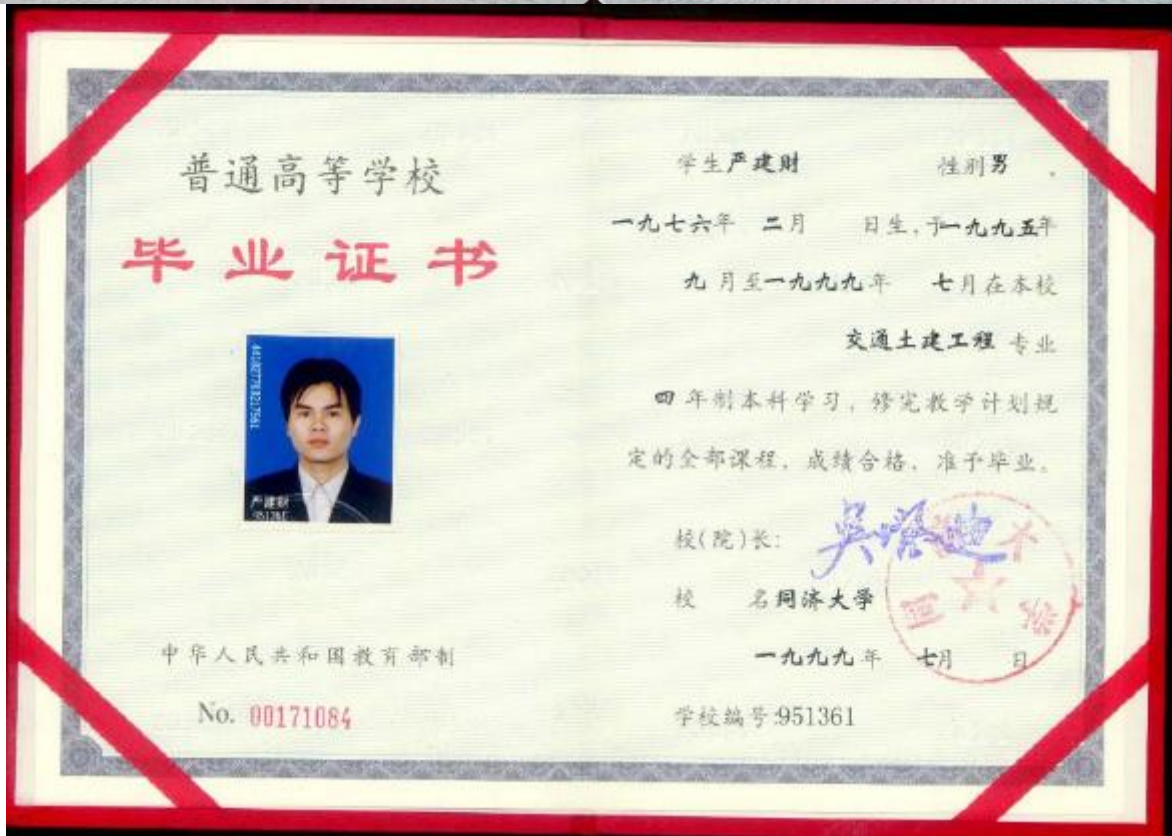 普通高等学校
毕业证书
严建财
951361
中华人民共和国教育部制
No. 00171084
学生严建财 性别男 .
一九七六年 二月 日生,于一九九五年
九月至一九九九年 七月在本校
交通土建工程 专业
四年制本科学习,修完教学计划规
定的全部课程,成绩合格,准予毕业。
校(院)长: 吴启迪
校 名同济大学
一九九九年 七月 日
学校编号:951361
同济大学